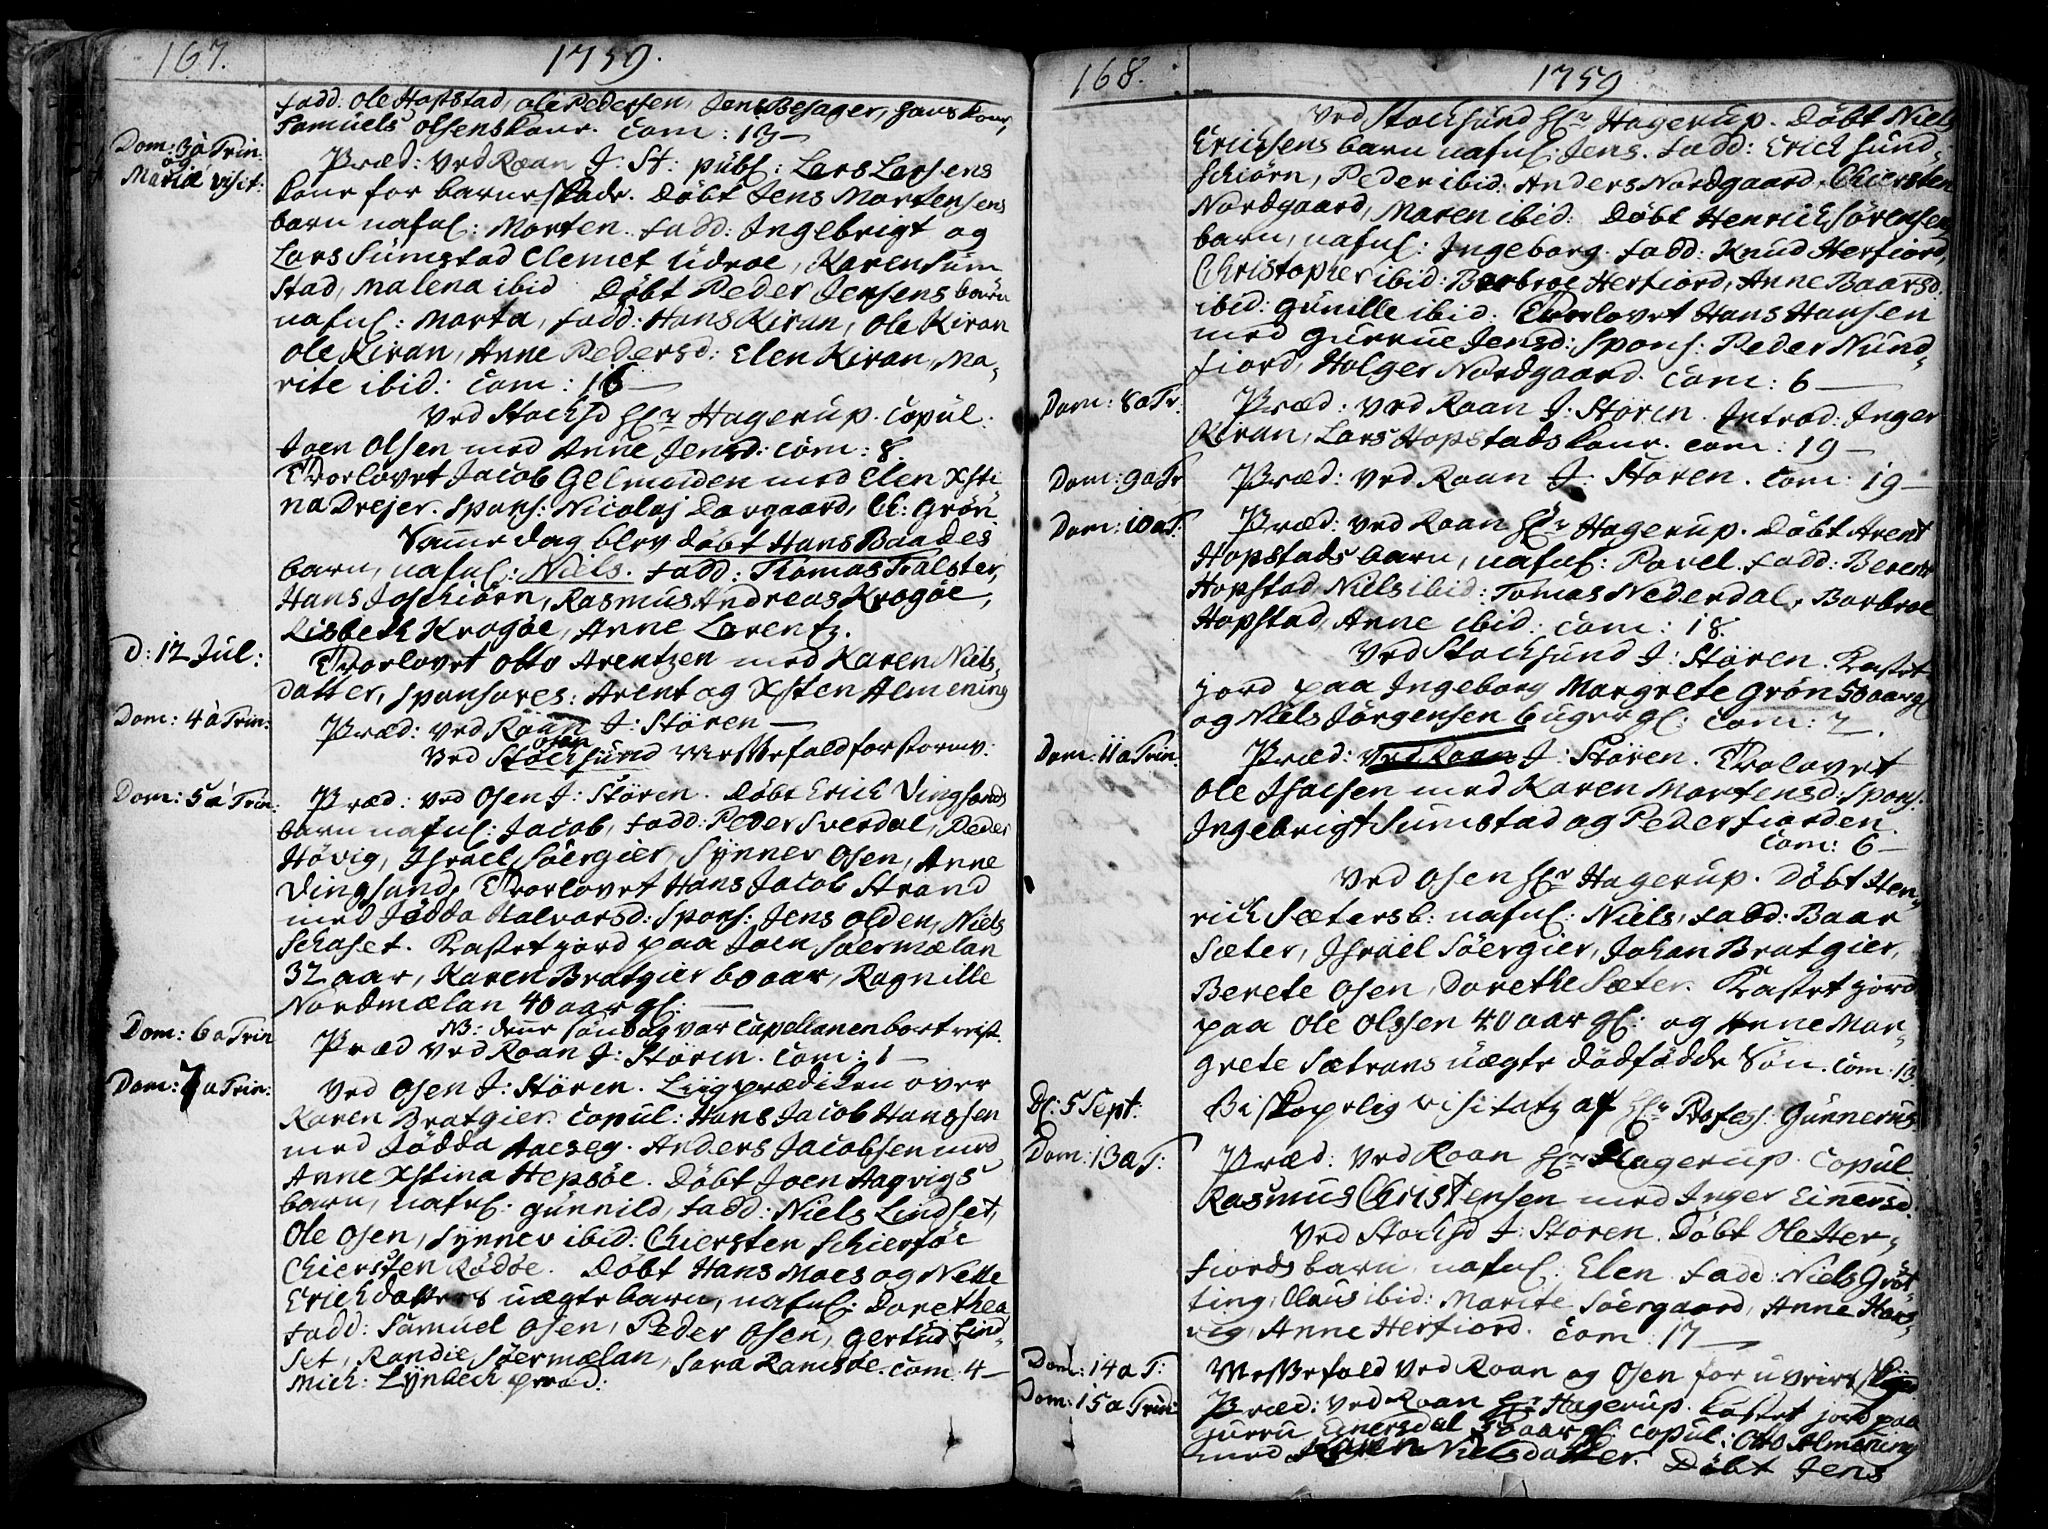 167.
1759.
fadd: Ole Hopstad, Ole Pedersen, Jens Besager, Hans kone,
Samuels Olsens kone. Com: 13 —
Dom: 3 a Trin.
og
Mariæ visit:
Præd: ved Roan J. St: publ: Lars Larsens
kone for barneskade. Döbt Jens Mortensens
barn nafnl: Morten. fadd: Ingebrigt og
Lars Sumstad Clemet Udroe, Karen Sum
stad, Malena ibid Döbt Peder Jensens barn
nafnl: Marta, fadd: Hans Kiran, Ole Kiran
Ole Kiran, Anne Pedersd: Elen Kiran, Ma-
rite ibid: Com: 16 —
Ved Stocksd Hr Hagerup. Copul:
Joen Olsen med Anne Jensd: Com: 8.
Trorlovet Jacob Gelmeiden med Elen Xsti
na Drejer. Spons: Nicolaj Dargaard, Ch: Grön.
Samme dag blev döbt Hans Baades
barn, nafnl: Niels. fadd: Thomas Tralster,
Hans Joschiörn, Rasmus Andreas Krogöe,
Lisbeth Krogöe, Anne Lorentz.
D: 12 Jul:
Trorlovet Otto Arentzen med Karen Niels,
datter, Sponsores: Arent og Xsten Almening
Dom: 4 a Trin:
Præd: ved Roan J: Stören —
Ved Stocksund Osen Messefald for storm v:
Dom: 5 a Trin:
Præd: ved Osen J: Stören. Döbt Erich Vingsands
barn nafnl: Jacob, fadd: Peder Sverdal, Peder
Hövig, Israel Söergier, Synnev Osen, Anne
Vingsund, Trorlovet Hans Jacob Strand
med Jödda Halvorsd: Spons: Jens Olden, Niels
Schaset. Kastet jord paa Joen Söermælan
32 aar, Karen Bratgier 60 aar, Ragnille
Nordmælan 40 aar gl: —
Dom: 6 a Trin
NB: denne söndag var Capellanen bortreist.
Præd ved Roan J: Stören. Com: 1 —
Dom: 7 a Trin:
Ved Osen J: Stören. Liigprædiken over
Karen Bratgier. Copul: Hans Jacob Hanssen
med Jödda Aaeseg. Anders Jacobsen med
Anne Xstina Hepsöe. Döbt Joen Aagvigs
barn, nafnl: Gunnild, fadd: Niels Lindset,
Ole Osen, Synnev ibid: Chiersten Schiersöe
Chiersten Rödöe. Döbt Hans Moes og Nette
Erichdatters uægte barn, nafnl: Dorethea
fadd: Samuel Osen, Peder Osen, Gertrud Lind-
set, Randie Söermælan, Sara Ramsöe. Com: 4 —
Mich: Lynbech præd:
168.
1759
Ved Stocksund Hr Hagerup. Döbt Niels
Ericksens barn nafnl: Jens. fadd: Erich Sund-
schiörn, Peder ibid: Anders Nordgaard, Chiersten
Nordgaard, Maren ibid: Döbt Henrich Sörensens
barn, nafnl: Ingeborg. fadd: Knud Herfiord,
Christopher ibid: Barbroe Herfiord, Anne Baarsd:
ibid: Gunille ibid: Trorlovet Hans Hansen
med Gurrue Jensd: Spons: Peder Nund-
fiord, Holger Nordgaard. Com: 6 —
Dom: 8 a Tr.
Præd: ved Roan J: Stören. Introd: Inger
Kiran, Lars Hopstads kone. Com: 19 —
Dom: 9 a Tr
Præd: ved Roan J. Stören. Com: 19 —
Dom: 10 a T:
Præd: ved Roan Hr Hagerup. Döbt Arent
Hopstads barn, nafnl: Povel. fadd: Berent
Hopstad, Niels ibid: Tomas Nederdal, Barbroe
Hopstad, Anne ibid: Com: 18.
Ved Stocksund J: Stören. Kastet
jord paa Ingeborg Margrete Grön 50 aar gl
og Niels Jörgensen 6 uger gl: Com: 7.
Dom: 11 a Trin.
Præd: ved Roan J: Stören. Trolovet
Ole Isacsen med Karen Mortensd: Spons:
Ingebrigt Sumstad og Peder Fiorden.
Com: 6 —
Ved Osen Hr Hagerup. Döbt Hen-
rich Sætersb: nafnl: Niels, fadd: Baar
Sæter, Israel Söergier, Johan Bratgier,
Berete Osen, Dorethe Sæter. Kastet jord
paa Ole Olssen 40 aar gl: og Anne Mar-
grete Sætrans uægte dödfödde Sön. Com: 13
D: 5 Sept:
Biskopelig visitatz af Hr Profess: Gunnerus
Dom: 13 a T:
Præd: ved Roan Hr Hagerup. Copul
Rasmus Christensen med Inger Einersd.
Ved Stocksd J: Stören. Döbt Ole Her-
fiords barn nafnl: Elen fadd: Niels Gröt
ting, Claus ibid: Marite Söergaard, Anne Har-
vig, Anne Herfiord. Com: 17 —
Dom: 14 a T:
Messefald ved Roan og Osen for uveirs skyld
Dom: 15 a Trin:
Præd: ved Roan Hr Hagerup. Kastet jord paa
Gurru Einersdal 50 aar gl: Copul: Otto Almening
med Karen Nielsdatter. Döbt Jens